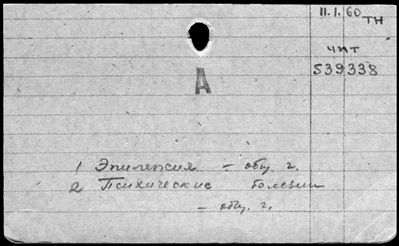 11.1.60 ТН
чит
539338
А
1 Эпилепсия – общ. г.
2 Психические болезни
– общ. г.